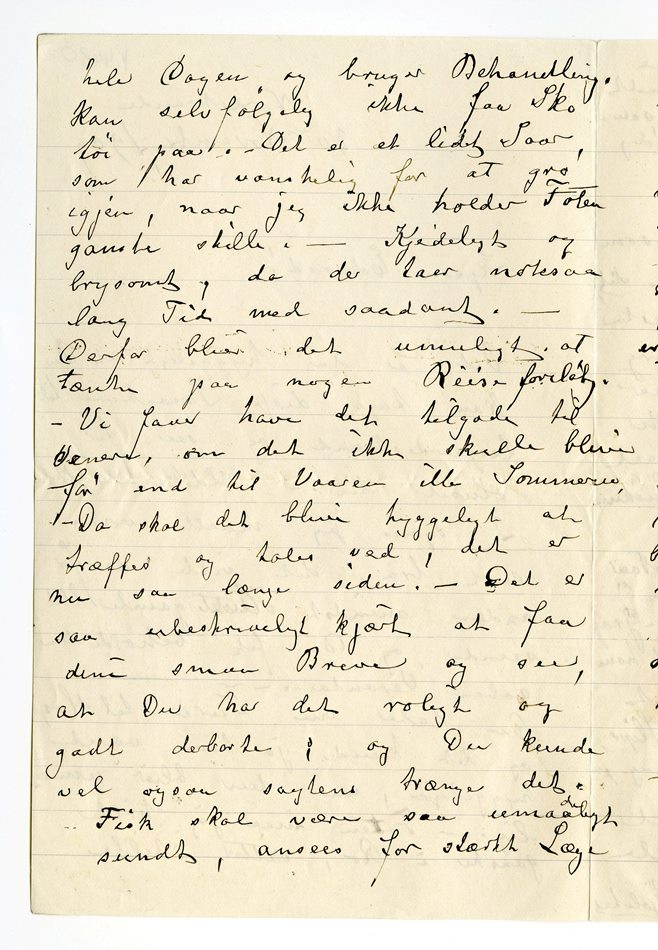 hele Dagen og bruger Behandling.
kan selvfölgelig ikke faa Sko
töi paa. - Det er et lidet Saar,
som har vanskelig for at gro
igjen, naar jeg ikke holder Foten
ganske stille. — Kjedeligt og
brysomt, da der taer noksaa
lang Tid med saadant. —
Derfor bliver det umuligt at
tænke paa nogen Reise foreløbig.
- Vi faaer have det tilgode til
senere, om det ikke skulde blive
för end til Vaaren ille Sommeren,
- Da skal det blive hyggeligt at
træffes og tales ved, det er
nu saa længe siden. - Det er
saa ubeskriveligt kjært at faa
dine smaa Breve og see,
at Du har det roligt og
godt derborte; og Du kunde
vel ogsaa sagtens trænge det.
Fisk skal være saa umaadeligt
sundt, ansees for stærkt Læge